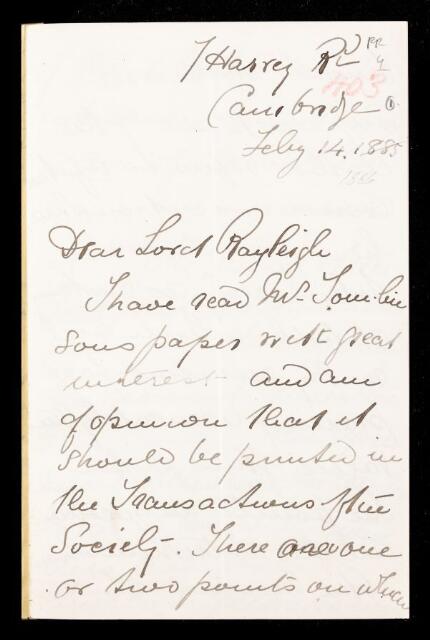 7 Harvey Rd RR
4
403
Cambridge ①
Feby 14. 1885
1886
Dear Lord Rayleigh
I have read Mr Tomlin
sons paper with great
interest and am
of opinion that it
should be printed in
the Transactions of the
Society. There are one
or two points on which